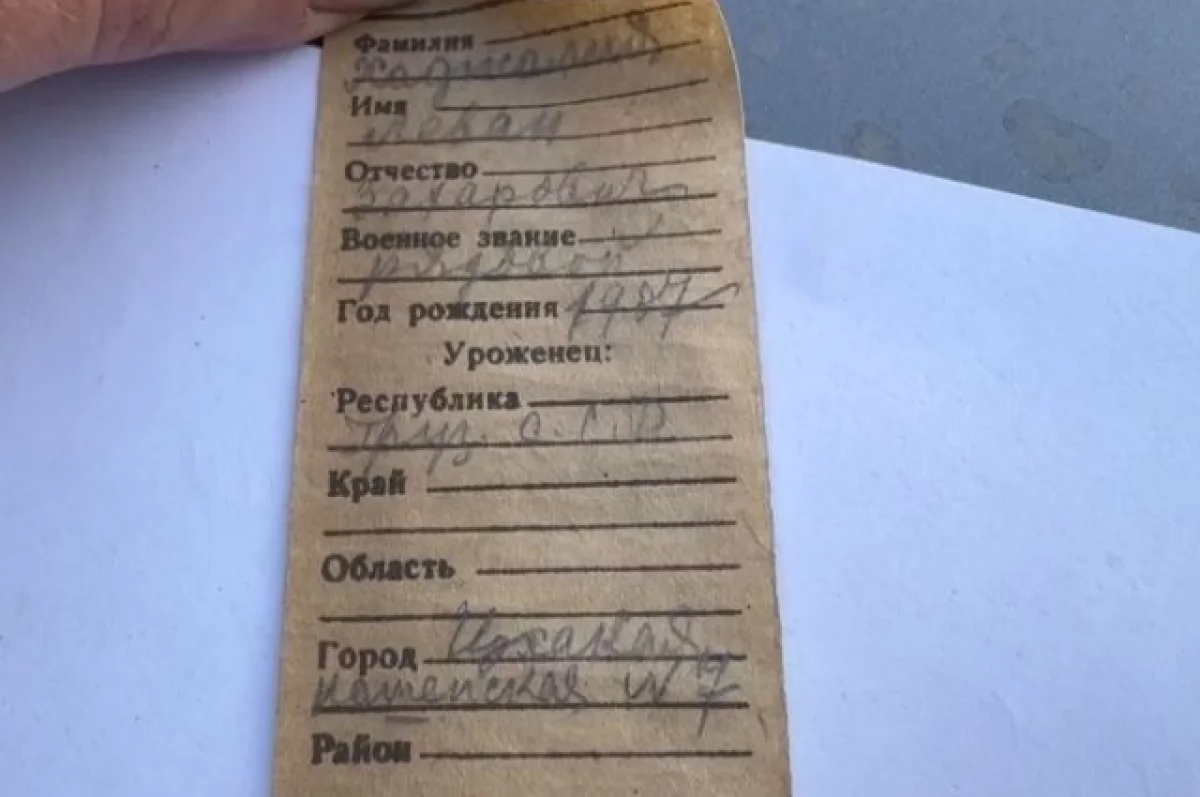 Фамилия
Имя
Отчество
Захарович
Военное звание
рядовой
Год рождения 1907
Уроженец:
Республика
Груз. С.С.Р.
Край
Область
Город Цхакая
№ 7
Район